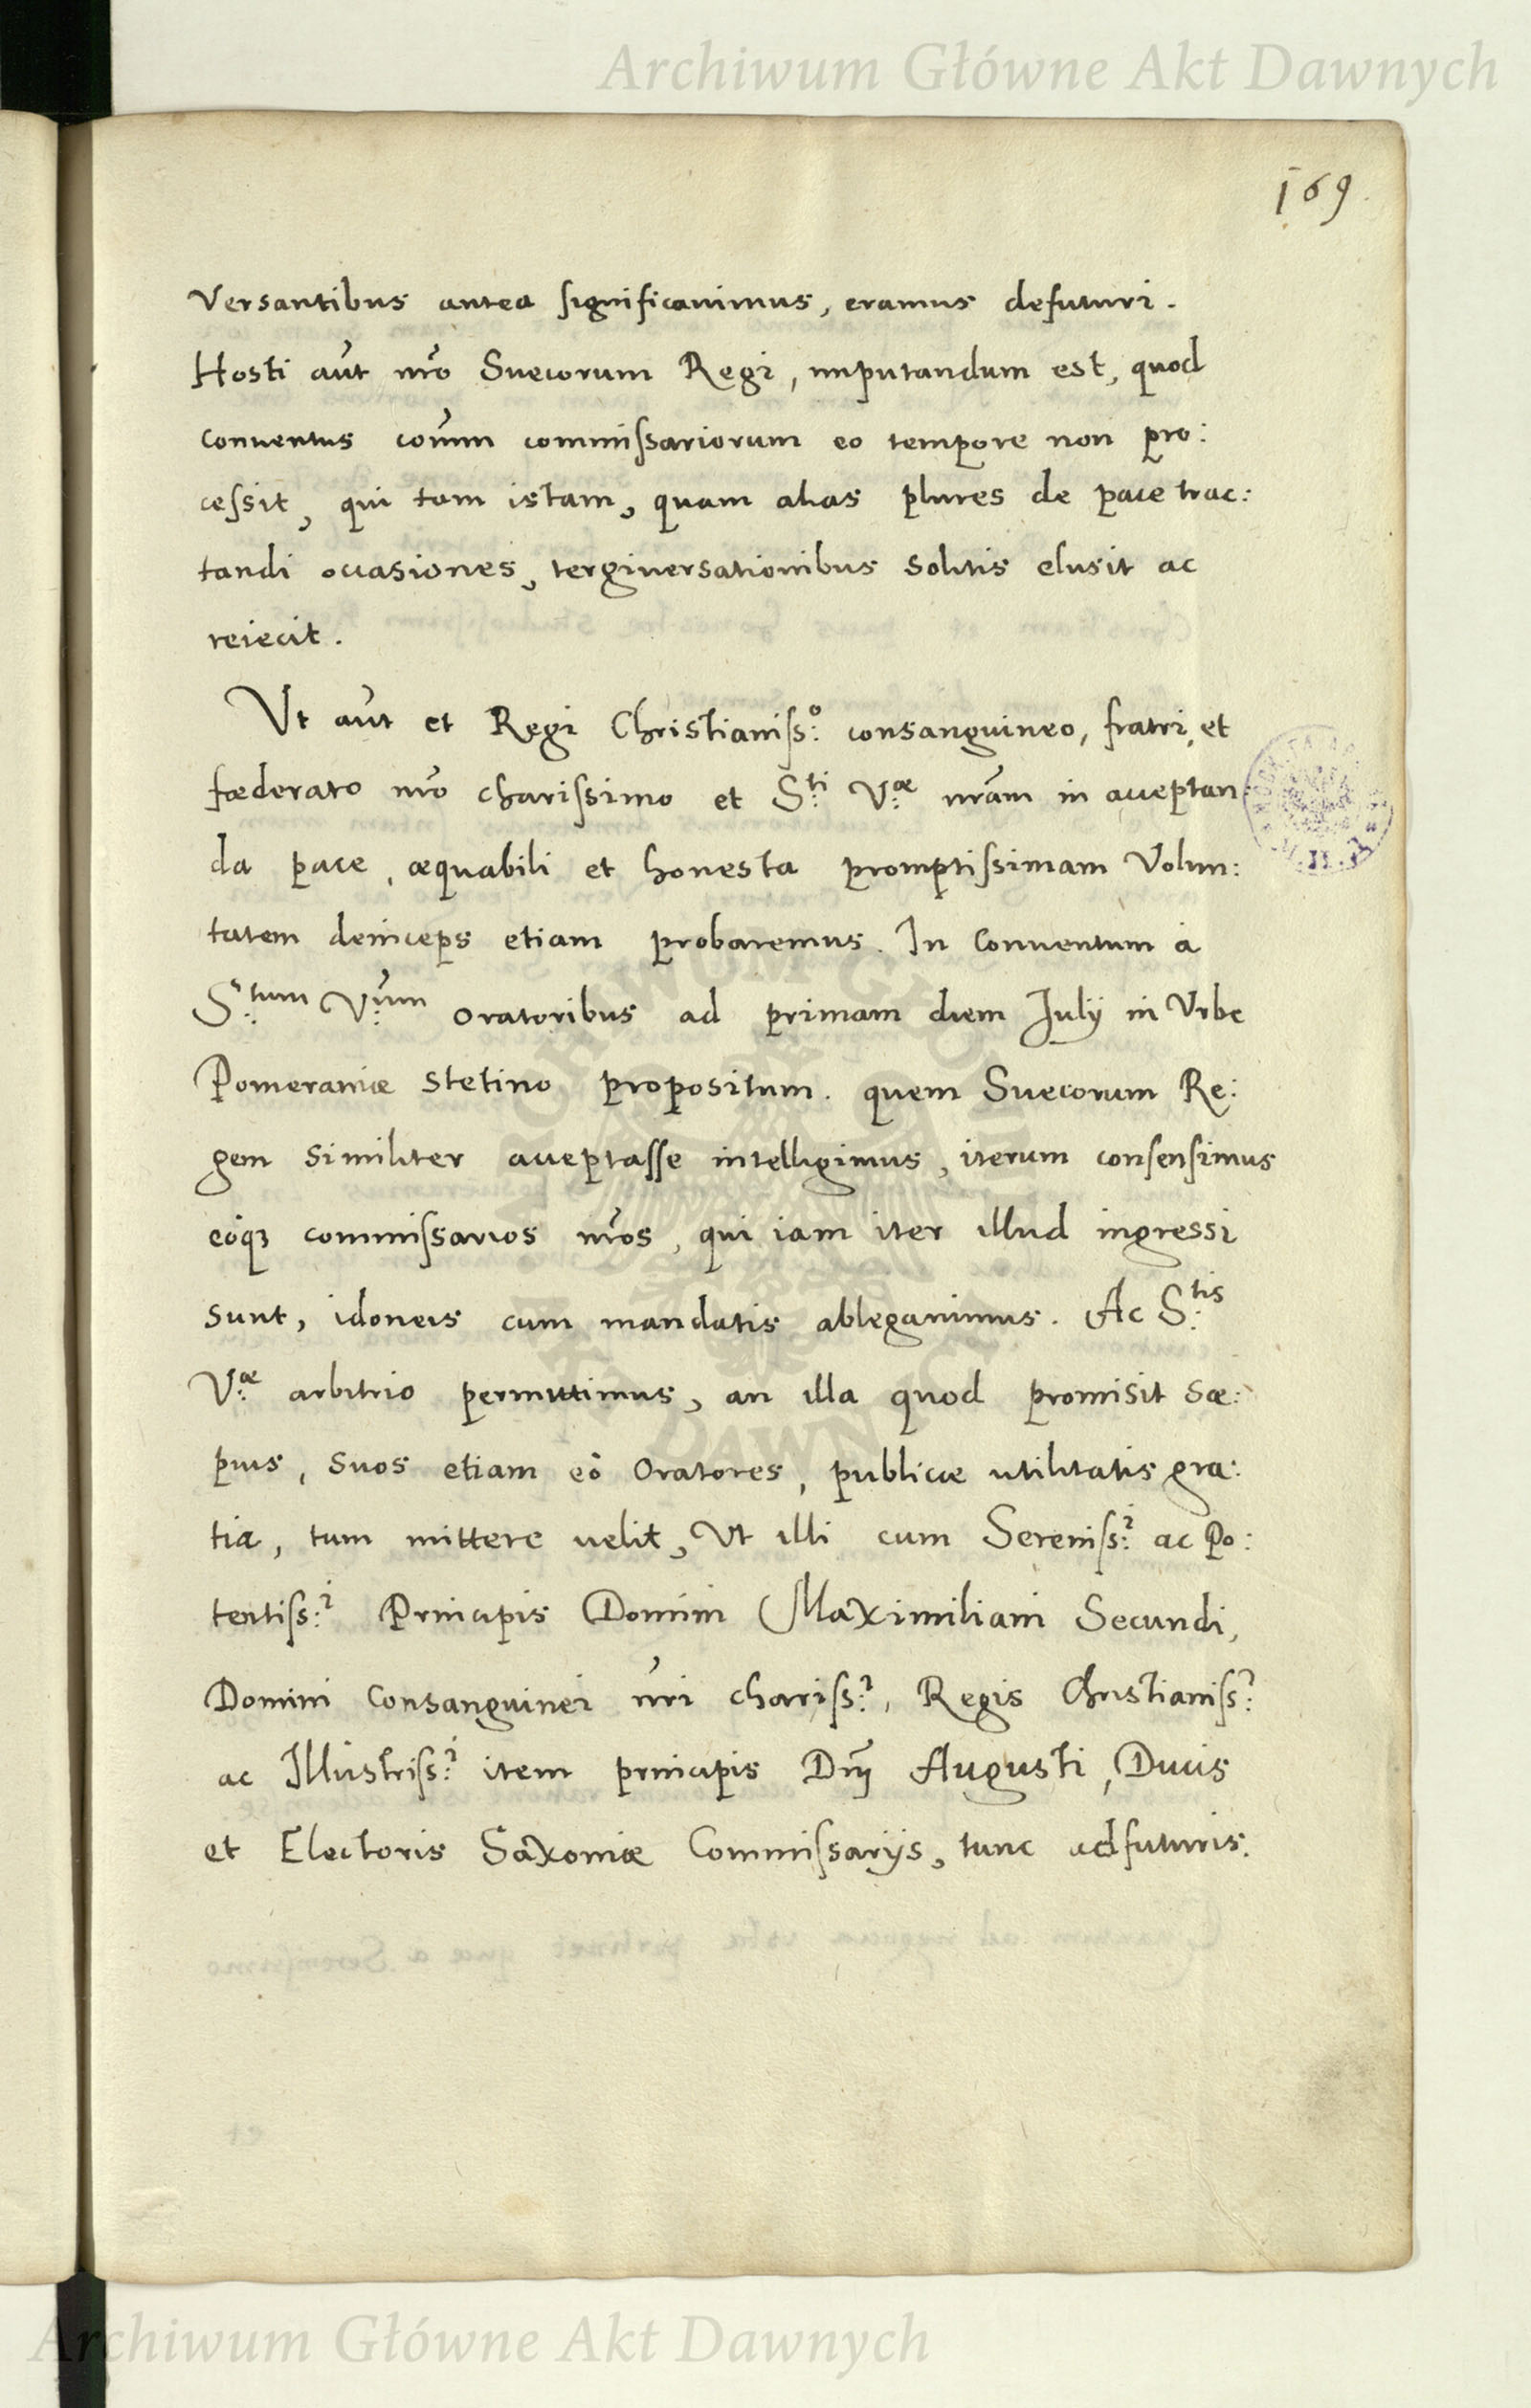 Archiwum Główne Akt Dawnych
169
Versantibus antea ſignificauimus, eramus defuturi.
Hosti aut̃ nr̃o Suecorum Regi, imputandum est, quod
conuentus com̃un commiſsariorum eo tempore non pro:
ceſsit, qui tam istam, quam alias plures de pace trac:
tandi occasiones, tergiuersationibus solitis elusit ac
reiecit.
Vt aut̃ et Regi Christianiſs:º consanguineo, fratri, et
fœderato nr̃o chariſsimo et S:ti V:æ nr̃am in acceptan
da pace, æquabili et honesta promptiſsimam Volun:
tatem deinceps etiam probaremus. In Conuentum à
S:tum V:r̃um oratoribus ad primam diem Julij in Vrbe
Pomeraniæ Stetino propositum. quem Suecorum Re:
gem similiter acceptaſse intelligimus, iterum conſenſimus
eòqꝫ commiſsarios nr̃os, qui iam iter illud ingressi
sunt, idoneis cum mandatis ablegauimus. Ac S:tis
V:æ arbitrio permittimus, an illa quod promisit sæ:
pius, suos etiam eò Oratores, publicæ utilitatis gra:
tia, tum mittere uelit, Vt illi cum Sereniſs:i ac Po:
tentiſs:i Principis Domini Maximiliani Secundi,
Domini Consanguinei nr̃i chariſs:i, Regis Christianiſs:i
ac Illustriſs:i item principis Dn̄j Augusti, Ducis
et Electoris Saxoniæ Commiſsarijs, tunc adfuturis.
ARCHIWUM GŁÓWNE
AKT DAWNYCH
Archiwum Główne Akt Dawnych